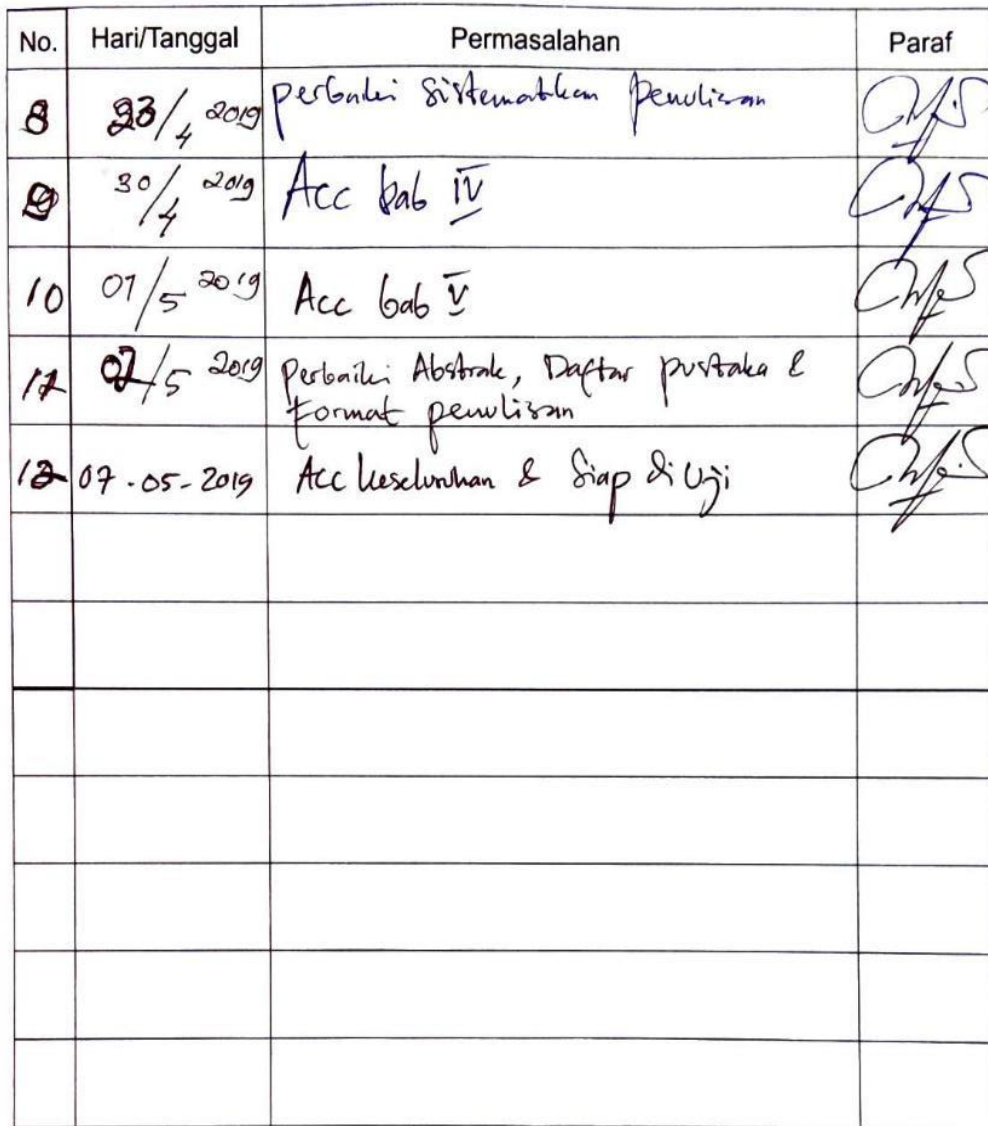 No. Hari/Tanggal Permasalahan Paraf
8 23/4 2019 perbaiki sistematikan penulisan
9 30/4 2019 Acc bab IV
10 01/5 2019 Acc bab V
11 02/5 2019 Perbaiki Abstrak, Daftar pustaka &
Format penulisan
12 07-05-2019 Acc keseluruhan & Siap di Uji